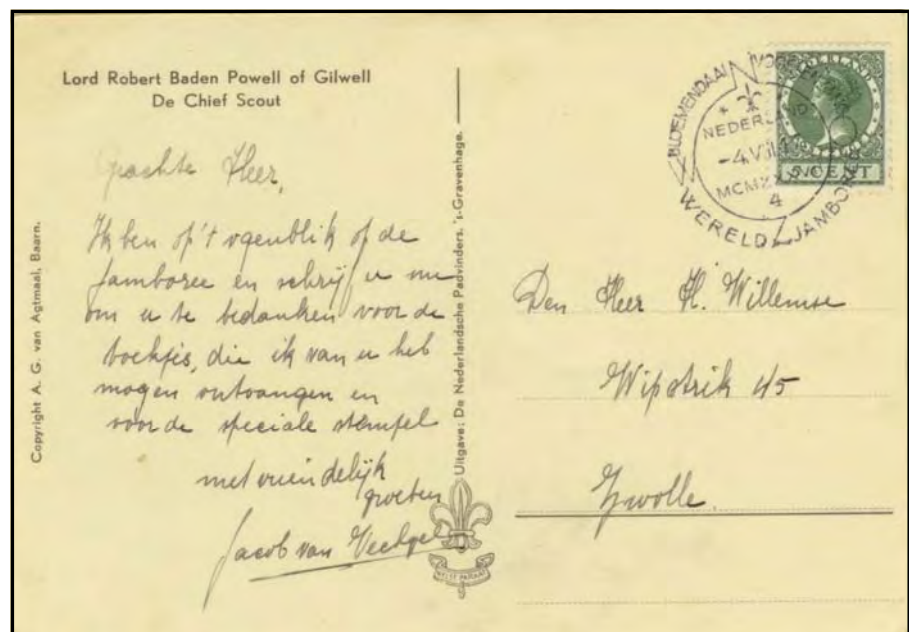 Lord Robert Baden Powell of Gilwell
De Chief Scout
Geachte Heer,
Ik ben op 't ogenblik op de
Jamboree en schrijf u nu
om u te bedanken voor de
boekjes, die ik van u heb
mogen ontvangen en
voor de speciale stempel
met vriendelijk
groeten
Jacob van
Copyright A. G. van Agtmaal, Baarn.
Uitgave: De Nederlandsche Padvinders. 's-Gravenhage.
WEEST PARAAT
BLOEMENDAAL VOGELENZANG
NEDERLAND
-4.VIII
4
WERELD JAMBOREE
NEDERLAND
5 CENT
Den Heer H. Willemse
Wipstrik 45
Zwolle.